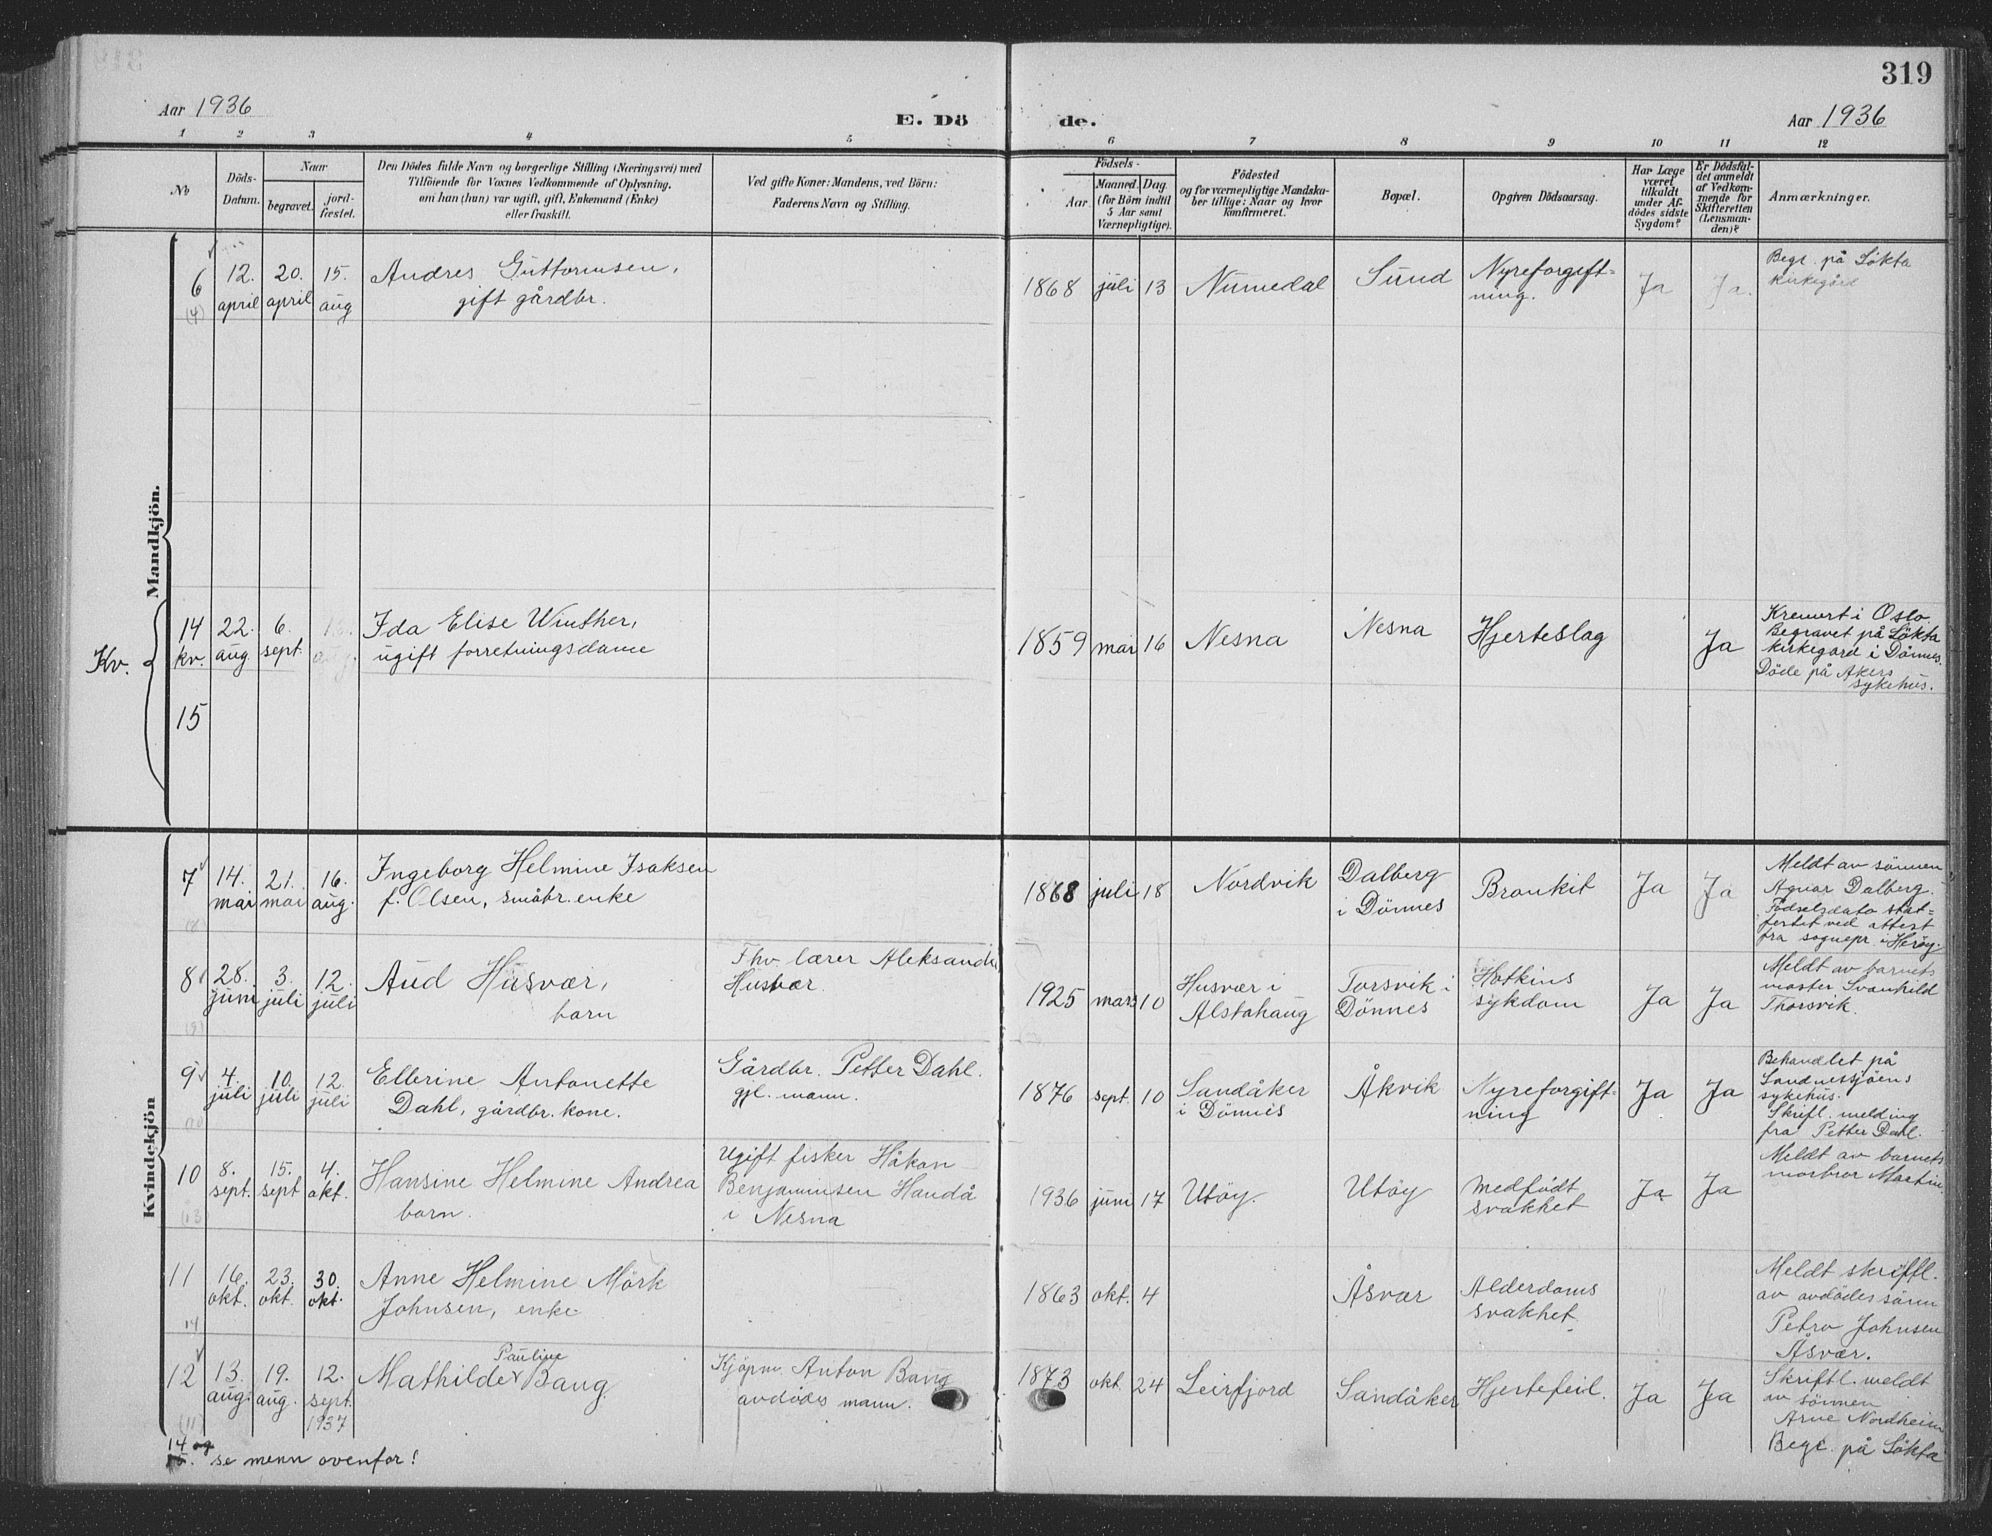 319
Aar 1936
E. Dö
de.
Aar 1936
1 2 3 4 5 6 7 8 9 10 11 12
No
Döds-
Datum.
Naar
begravet.
jord-
fæstet.
Den Dödes fulde Navn og borgerlige Stilling (Næringsvei) med
Tilföiende for Voxnes Vedkommende af Oplysning,
om han (hun) var ugift, gift, Enkemand (Enke)
eller fraskilt.
Ved gifte Koner: Mandens, ved Börn:
Faderens Navn og Stilling.
Födsels-
Aar.
Maaned. Dag
(for Börn indtil
5 Aar samt
Værnepligtige).
Födested
og for værnepligtige Mandska-
ber tillige: Naar og hvor
konfirmeret.
Bopæl.
Opgiven Dödsaarsag.
Har Læge
været
tilkaldt
under Af-
dödes sidste
Sygdom?
Er Dödsfal-
det anmeldt
af Vedkom-
mende for
Skifteretten
(Lensman-
den)?
Anmærkninger.
Mandkjön.
6
(4)
12.
april
20.
april
15.
aug
Andres Guttormsen,
gift gårdbr.
1868 juli 13 Numedal
Sund
Nyreforgift=
ning.
Ja
Ja.
Begr. på Løkta
kirkegård
Kv.
14
kv.
22.
aug.
6.
sept.
Ida Elise Winther,
ugift forretningsdame
1859 mai 16 Nesna
Nesna
Hjerteslag
Ja
Kremert i Oslo
begravet på Løkta
kirkegård i Dønnes.
Døde på Akers
sykehus.
15
Kvindekjön
7
14.
mai
21.
mai
16.
aug.
Ingeborg Helmine Isaksen
f. Olsen, småbr. enke
1868 juli 18 Nordvik
Dalberg
i Dönnes
Bronkit
Ja
Ja
Meldt av sönnen
Agnar Dalberg.
Födselsdato stat=
festet ved attest
fra sognepr. i Heröy.
8
28.
juni
3.
juli
12.
juli
Aud Husvær,
barn
Fhv lærer Aleksander
Husvær.
1925 mars 10
Husvær i
Alstahaug
Torsvik i
Dönnes
Hotkins
sykdom
Ja
Ja
Meldt av barnets
moster Svanhild
Thorsvik.
9
4.
juli
10.
juli
12.
juli
Ellerine Antonette
Dahl, gårdbr. kone.
Gårdbr. Petter Dahl.
gjl. mann.
1876 sept. 10
Sandåker
i Dönnes
Åkvik
Nyreforgift-
ning
Ja
Ja
Behandlet på
Sandnessjöens
sykehus.
Skriftl. melding
fra Petter Dahl.
10
8.
sept.
15.
sept
4.
okt.
Hansine Helmine Andrea
barn.
Ugift fisker Håkon
Benjaminsen Handå
i Nesna
1936 juni 17 Utöy.
Utöy
medfödt
svakhet
Ja
Ja
Meldt av barnets
morbror Martin.
11
14
16.
okt.
23.
okt.
30.
okt.
Anne Helmine Mörk
Johnsen, enke
1863 okt. 4
Åsvær
Alderdoms
svakhet.
Meldt skriftl.
av avdödes sönn
Petro Johnsen
Åsvær.
12
(11)
13.
aug.
19.
aug.
12.
sept.
1937
Pauline
Mathilde Bang
Kjöpm. Anton Bang
avdöds mann.
1873 okt. 24 Leirfjord
Sandåker
Hjertefeil.
Ja
Ja
Skriftl. meldt
av sönnen
Arne Nordheim
Begr. på Løkta
14 og
15. se menn ovenfor!